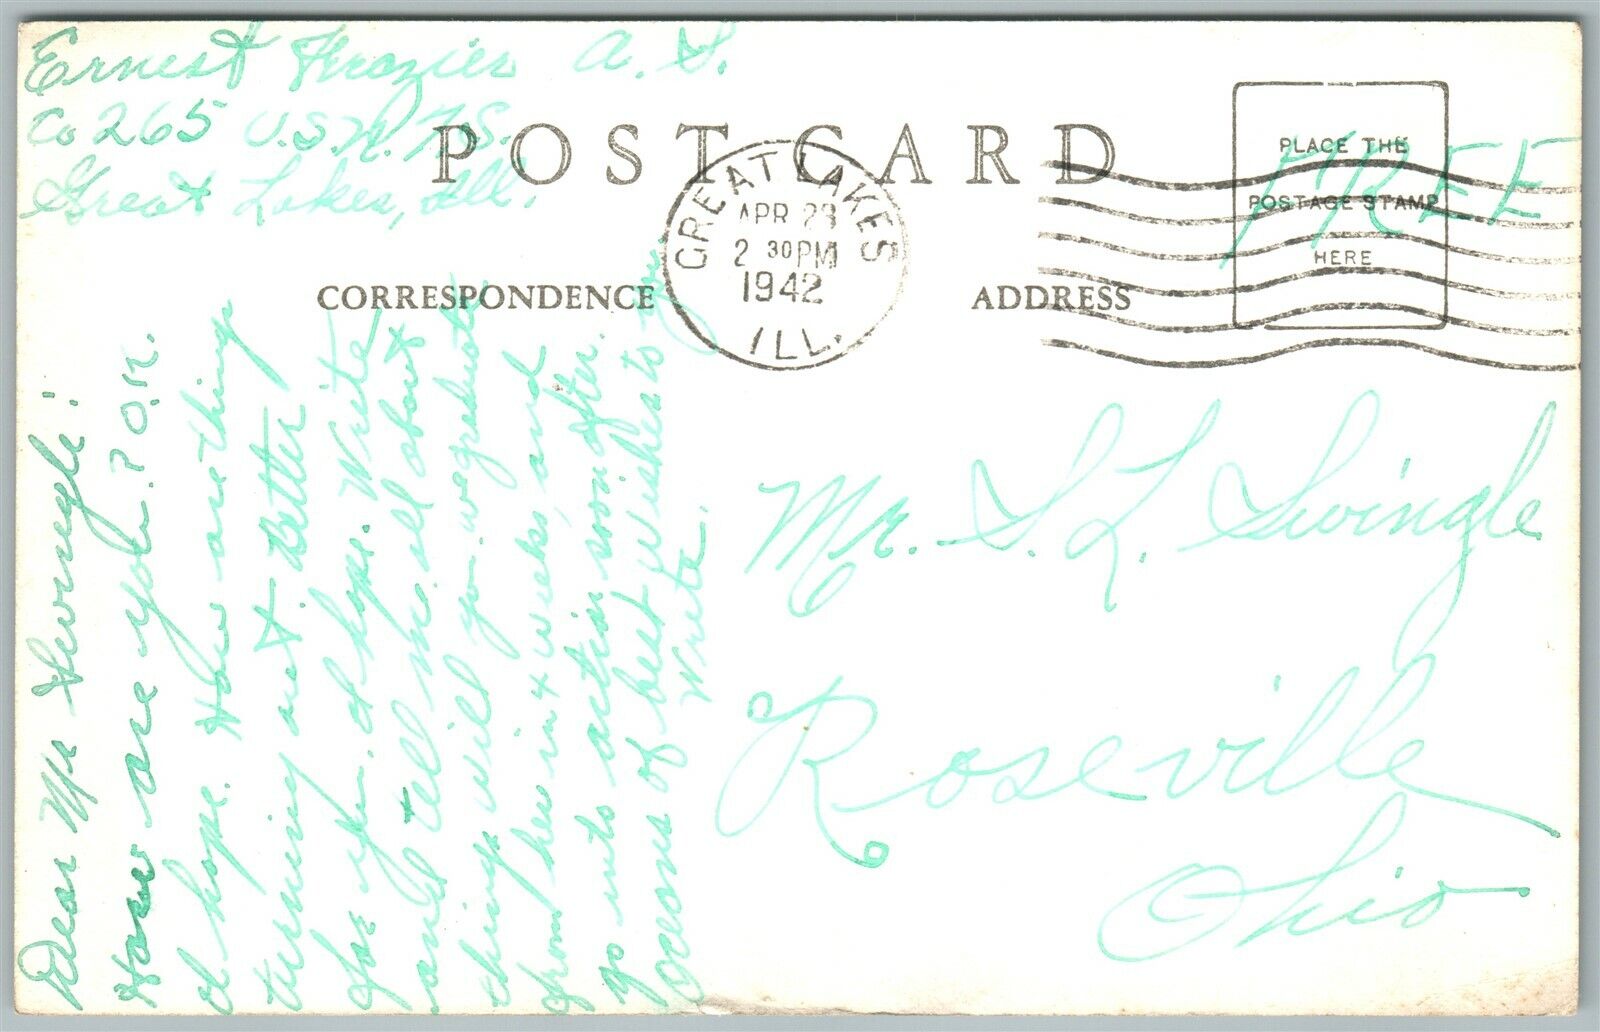 Ernest Frazier A. S.
Co 265 U.S.N.T.S.
Great Lakes, Ill.
POST CARD
GREAT LAKES
APR 23
2 30 PM
1942
ILL.
PLACE THE
POSTAGE STAMP
HERE
FREE
CORRESPONDENCE
ADDRESS
Dear Mr Swingle:
How are you? O.K.
I hope. How are things
turning out. Better
I hope. Write
and tell me all about
things will you we graduate
from here in 4 weeks, and
go into action soon after.
Oceans of best wishes to you
Write.
Mr. S. L. Swingle
Roseville
Ohio